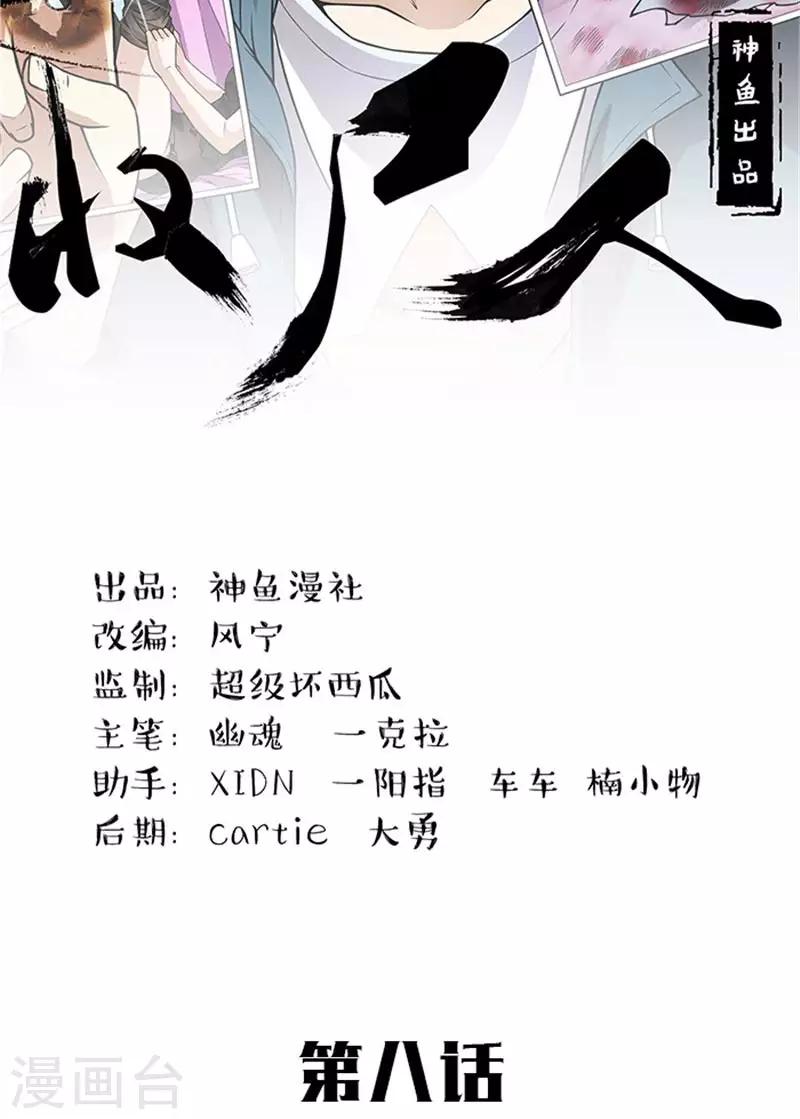 神鱼出品
收尸人
出品: 神鱼漫社
改编: 风宁
监制: 超级坏西瓜
主笔: 幽魂 一克拉
助手: XIDN 一阳指 车车 楠小物
后期: cartie 大勇
第八话
漫画台